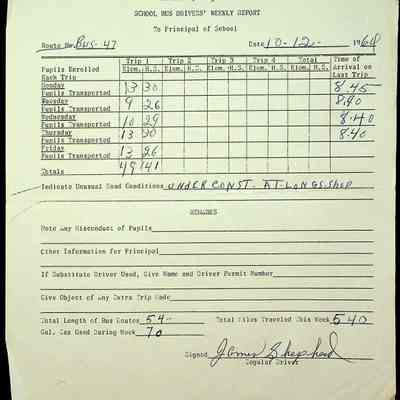 SCHOOL BUS DRIVERS' WEEKLY REPORT
To Principal of School
Route No. BUS-47 Date 10-12- 1968
Trip 1 Trip 2 Trip 3 Trip 4 Total Time of
Pupils Enrolled Elem. H.S. Elem. H.S. Elem. H.S. Elem. H.S. Elem. H.S. Arrival on
Each Trip Last Trip
Monday
Pupils Transported 13 30 8.45
Tuesday
Pupils Transported 9 26 8.40
Wednesday
Pupils Transported 10 29 8.40
Thursday
Pupils Transported 13 30 8.40
Friday
Pupils Transported 13 26
Totals 49 141
Indicate Unusual Road Conditions UNDER CONST. AT-LONGS.SHOP
REMARKS
Note Any Misconduct of Pupils
Other Information for Principal
If Substitute Driver Used, Give Name and Driver Permit Number
Give Object of Any Extra Trip Made
Total Length of Bus Routes 54- Total Miles Traveled This Week 540
Gal. Gas Used During Week 70
Signed James Shepherd
Regular Driver